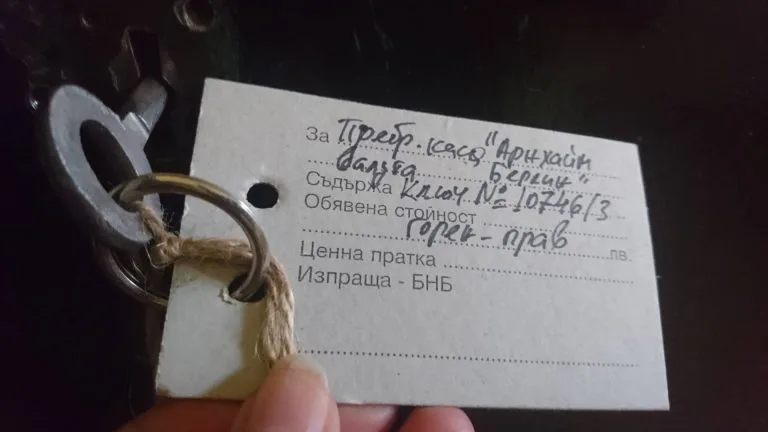 За Требр. каса "Арнхайм
балува Берлин"
Съдържа ключ № 10746/3
Обявена стойност
Горен - прав лв.
Ценна пратка
Изпраща - БНБ